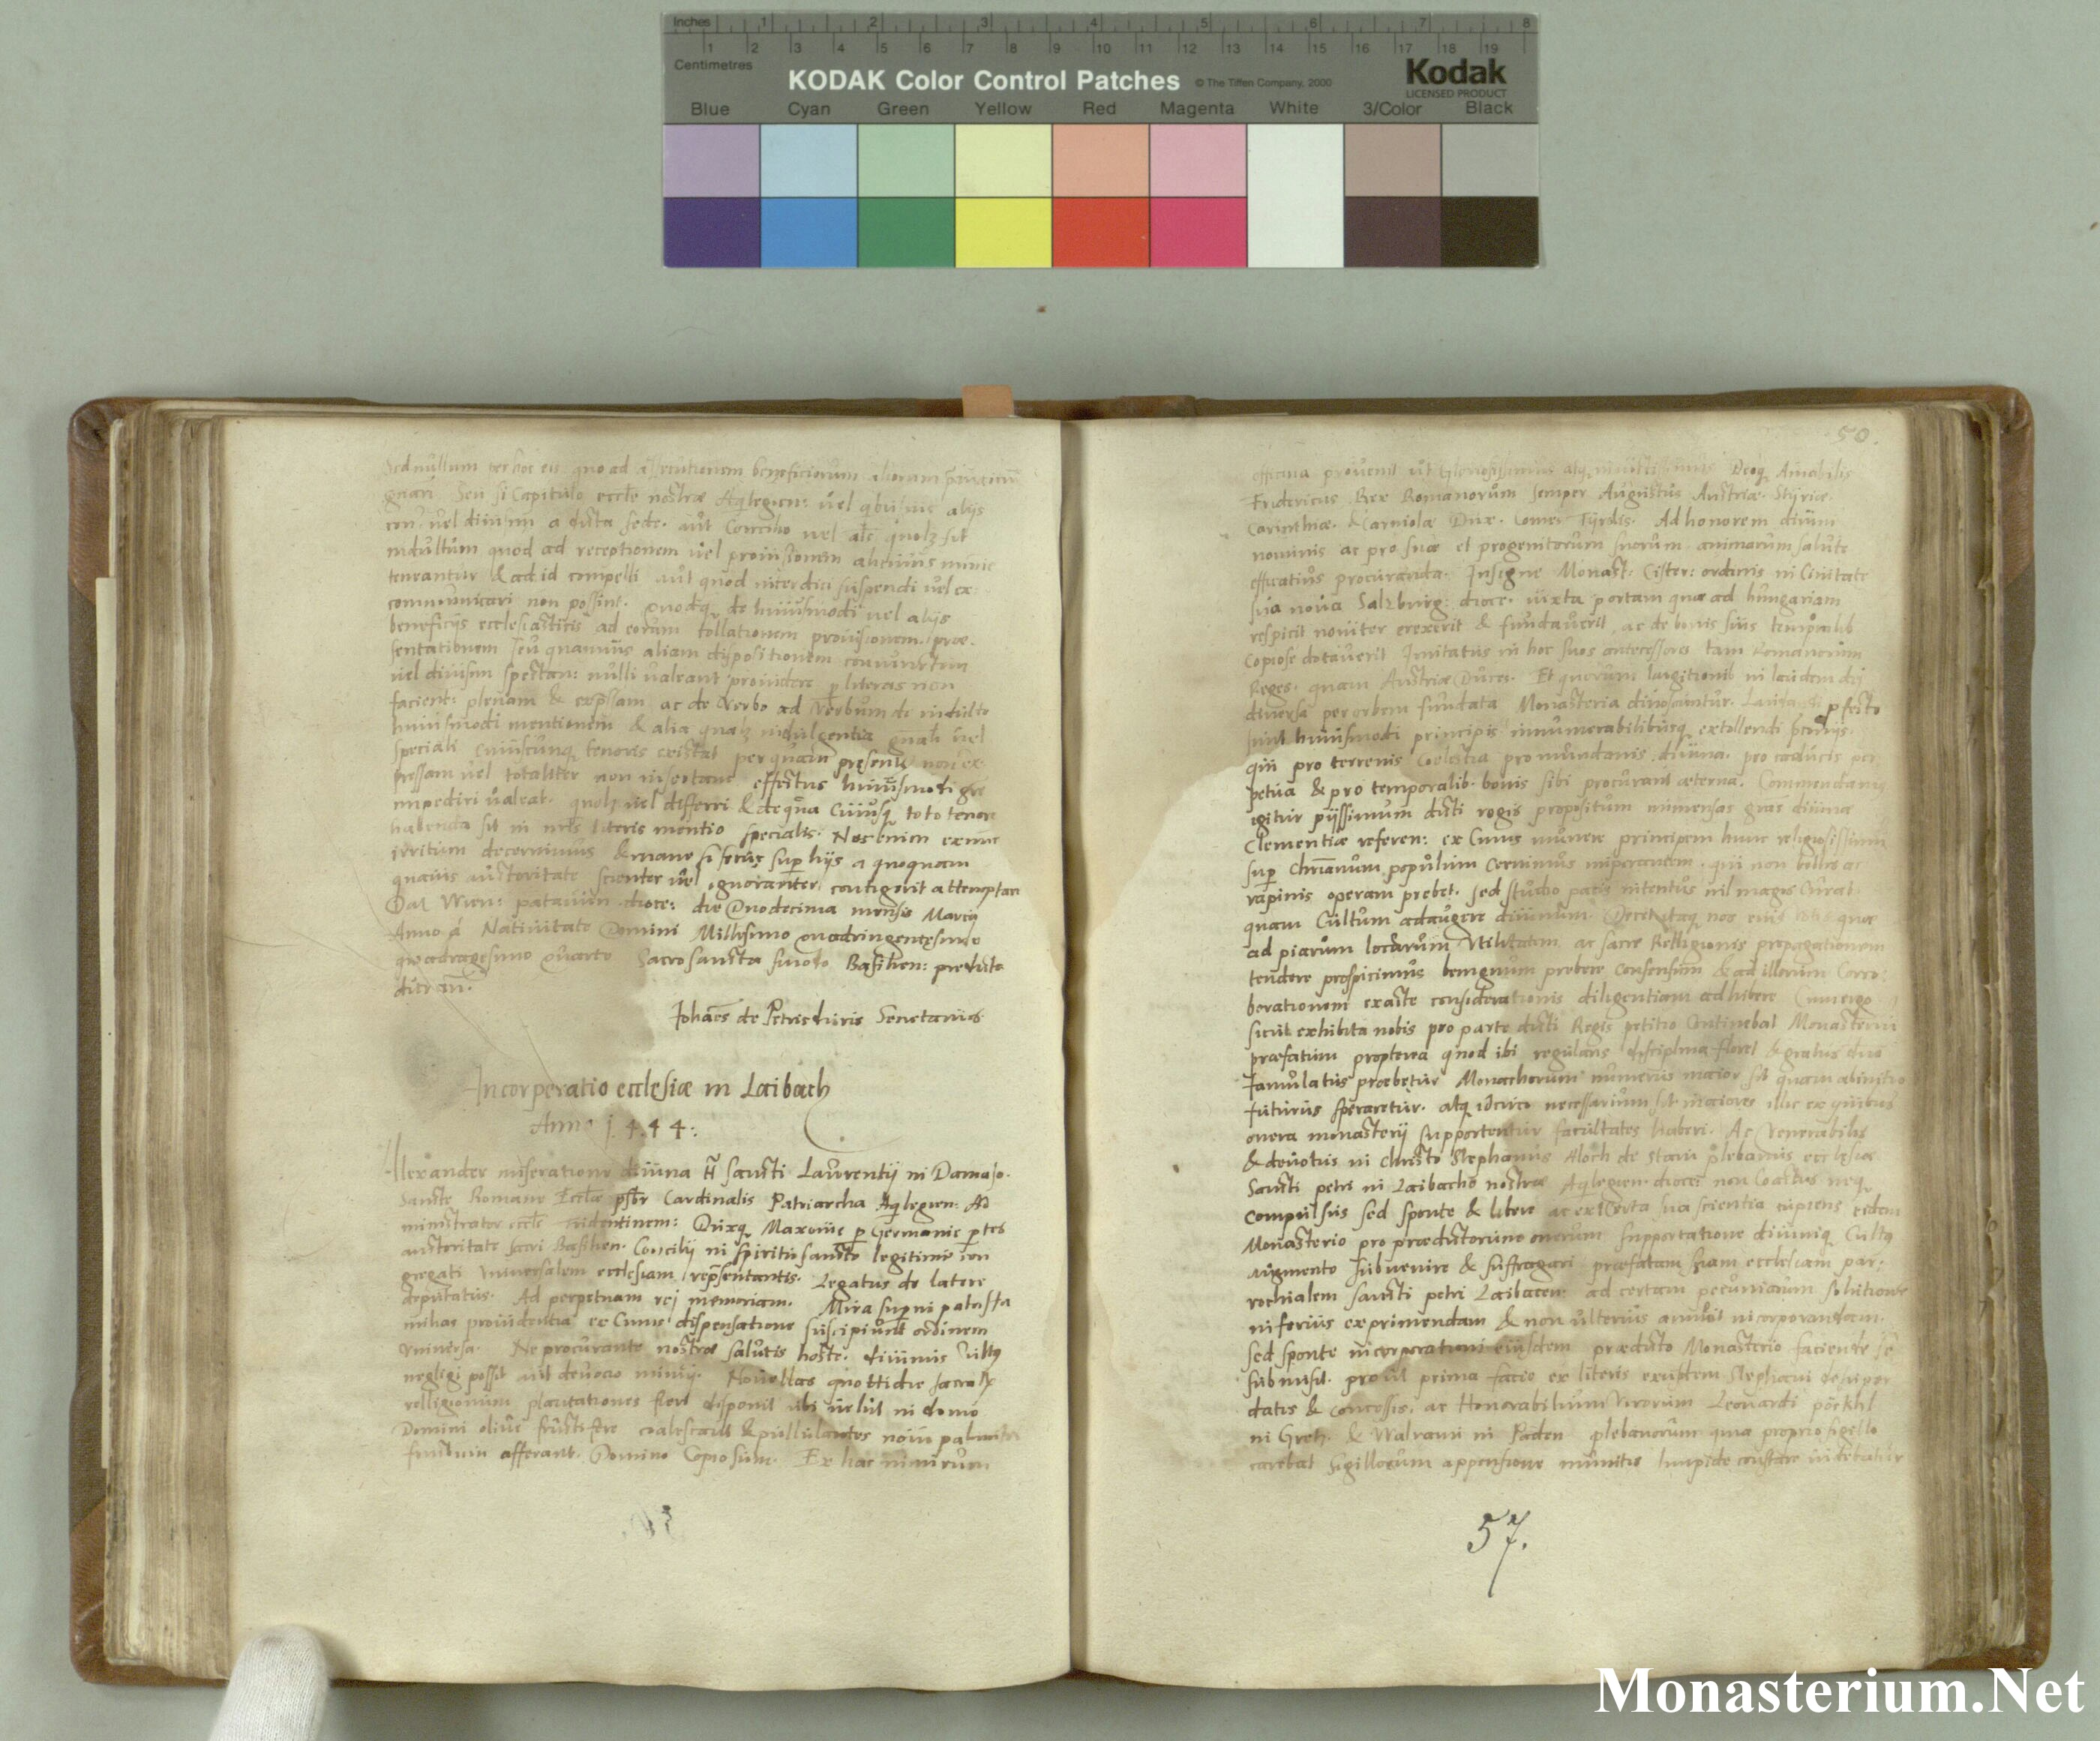 Inches 1 2 3 4 5 6 7 8
1 2 3 4 5 6 7 8 9 10 11 12 13 14 15 16 17 18 19
Centimetres
KODAK Color Control Patches © The Tiffen Company, 2000 Kodak
LICENSED PRODUCT
Blue Cyan Green Yellow Red Magenta White 3/Color Black
Sed nullum per hoc eis quo ad assecutionem beneficiorum aliorum
Seu si Capitulo eccle nostræ Aqlegien: vel quibusvis alijs
vel divisim a dicta sede. aut Concilio vel als quolz sit
indultum quod ad receptionem vel provisionem alicuius minie
teneantur & ad id compelli aut quod interdici suspendi vel ex
communicari non possint. quodq de huiusmodi vel alijs
beneficijs ecclesiasticis ad eorum collationem provisionem. præ.
sentationem seu quamvis aliam dispositionem coniunctim
vel divisim spectan: nulli valeant providere p literas non
facient: plenam & expssam ac de verbo ad verbum de indulto
huiusmodi mentionem & alia qualz indulgentia gnali vel
speciali cuiuscunq tenoris existat per quam presentis non ex
pressam vel totaliter non insertam effectus huiusmodi gre
impediri valeat. quolz vel differri & de qua cuiusq toto tenore
habenda sit in nris literis mentio specialis. Nos enim exnunc
irritum decernimus & inane si secus super hijs a quoquam
quavis auctoritate scienter vel ignoranter contigerit attemptari
Dat Wien: patavien dioce: die Duodecima mensis Marcij
Anno á Nativitate Domini Millesimo quadringentesimo
quadragesimo quarto Sacrosancta sinodo Basilien: predicta
Johães de Petrisduris Secretarius
Incorporatio ecclesiæ in Laibach
Anno 1.4.4 4:
Alexander miseratione divina tt Sancti Laurentij in Damaso.
Sancte Romane Eccłæ psbr Cardinalis Patriarcha Aqlegien: Ad
ministrator eccle Tridentinem: Duxq Maxovie p Germanie ptes
auctoritate sacri Basilien. Concilij in spiritu sancto legitime con
gregati universalem ecclesiam repsentantis. Legatus de latere
deputatus. Ad perpetuam rej memoriam. Mira superni patris fa
milias providentia ex Cuius dispensatione suscipiunt ordinem
universa. Ne procurante nostræ salutis hoste. divinus cultq
negligi possit aut devocio minuj. Novellas quottidie
relligionum plantationes fieri disponit ubi velut in domo
Domini olive fructifere coalescant & pullulantes novi palmites
fructum afferant. Domino Copiosum. Ex hac nimirum
50.
officina provenit ut Gloriosissimus atq invictissimus Deoq Amabilis
Fridericus Rex Romanorum semper Augustus Austriæ. Styriæ.
Carinthiæ. & Carniolæ Dux. Comes Tyrolis. Ad honorem divini
nominis ac pro suæ et progenitorum suorum animarum salute
efficatius procuranda. Insigne Monast. Cister: ordinis in Civitate
sua nova Salzburg: dioce. iuxta portam quæ ad hungariam
respicit noviter erexerit & fundaverit, ac de bonis suis temporalib
Copiose dotaverit Imitatus in hoc suos antecessores tam Romanorum
Reges. quam Austriæ Duces. Et quorum largitionib in laudem dej
diversa per orbem fundata Monasteria dinoscuntur. pfecto
sunt huiusmodi principis innumerabilibusq extollendi pconijs.
qui pro terrenis Coelestia pro mundanis divina. pro caducis per
petua & pro temporalib. bonis sibi procurant æterna. Commendamus
igitur pijssimum dicti regis propositum immensas gras divinæ
Clementiæ referen: ex Cuius munere principem hunc religiosissimum
sup Chrianum populum Cernimus imperantem. qui non bellis ac
rapinis operam prebet. sed studio pacis intentus nil magis Curat.
quam Cultum adaugere divinum. Decet itaq nos eius votis quæ
ad piarum locorum utilitatem ac sacre Relligionis propagationem
tendere prospicimus benignum prebere consensum & ad illorum Corro:
berationem exacte considerationis diligentiam adhibere Cum ergo
sicut exhibita nobis pro parte dicti Regis petitio Continebat Monasterium
præfatum propterea quod ibi regularis disciplina floret & gratus deo
famulatus præbetur Monachorum numerus maior sit quam ab initio
futurus speraretur. atq idcirco necessarium sit maiores illic ex quibus
onera monasterij supportentur facultates haberi. Ac Venerabilis
& devotus in Christo Stephanus Aloch de Stain plebanus ecclesiæ
Sancti petri in Laibacho nostræ Aqlegien dioces non Coactus neq
compulsus sed sponte & libere ac ex Certa sua scientia cupiens eidem
Monasterio pro prædictorum onerum supportatione diviniq Cultq
augmento subvenire & suffragari præfatam suam ecclesiam par:
rochialem sancti petri Laibacen: ad certam pecuniarum solutione
inferius exprimendam & non ulterius annuit incorporandam.
sed sponte incorporationi eiusdem prædicto Monasterio faciende se
submisit. prout prima facie ex literis eiusdem Stephani desuper
datis & concessis. ac Honorabilium Virorum Leonardi
in Gretz. & Walrami in Paden plebanorum quia proprio sigello
carebat Sigillorum appensione munitis limpide constare videbatur
57.
Monasterium.Net